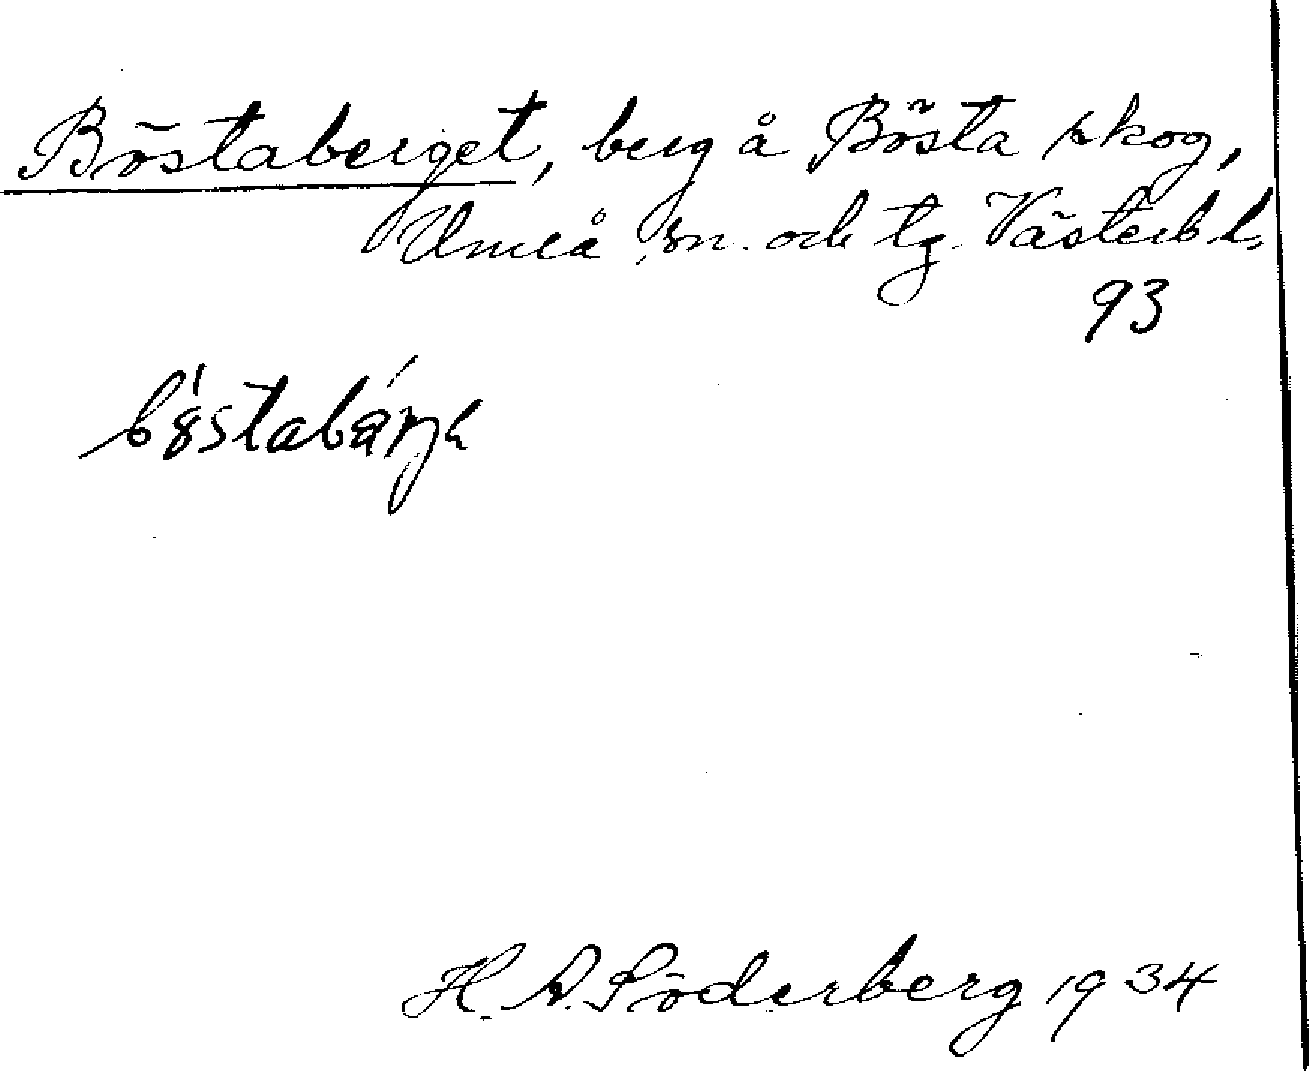 Böstaberget, berg å Bösta skog,
Umeå sn. och tg. Västerb l.
93
H. A. Söderberg 1934